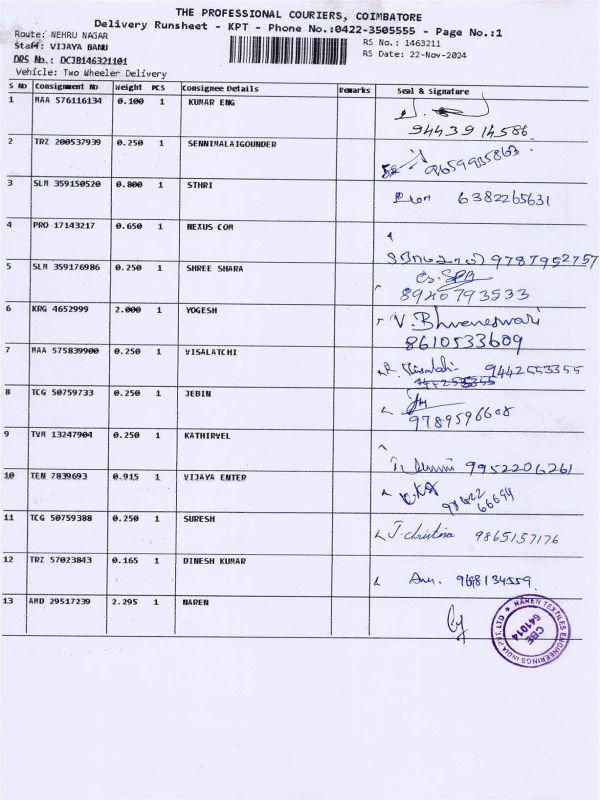 THE PROFESSIONAL COURIERS, COIMBATORE
Delivery Runsheet - KPT - Phone No.:0422-3505555 - Page No.:1
Route: NEHRU NAGAR
RS No.: 1463211
Staff: VIJAYA BANU
RS Date: 22-Nov-2024
DRS No.: DCJB146321101
Vehicle: Two Wheeler Delivery
S No Consignment No Weight PCS Consignee Details Remarks Seal & signature
1 MAA 576116134 0.100 1 KUMAR ENG
94439 14586
2 TRZ 200537939 0.250 1 SENNIMALAIGOUNDER
9659985863
3 SLM 359150520 0.800 1 STHRI
6382265631
4 PRO 17143217 0.650 1 NEXUS COM
9787952757
5 SLM 359176986 0.250 1 SHREE SHARA
8940793533
6 KRG 4652999 2.000 1 YOGESH
V. Bhuvaneswari
8610533609
7 MAA 575839900 0.250 1 VISALATCHI
Visalatchi 9442553355
8 TCG 50759733 0.250 1 JEBIN
9789596608
9 TVM 13247904 0.250 1 KATHIRVEL
9952206261
10 TEN 7839693 0.915 1 VIJAYA ENTER
98422
66694
11 TCG 50759388 0.250 1 SURESH
J. christina 9865157176
12 TRZ 57023843 0.165 1 DINESH KUMAR
9688134559
13 AMD 29517239 2.295 1 NAREN
NAREN TEXTILES ENGINEERINGS INDIA PVT. LTD
CBE
641014